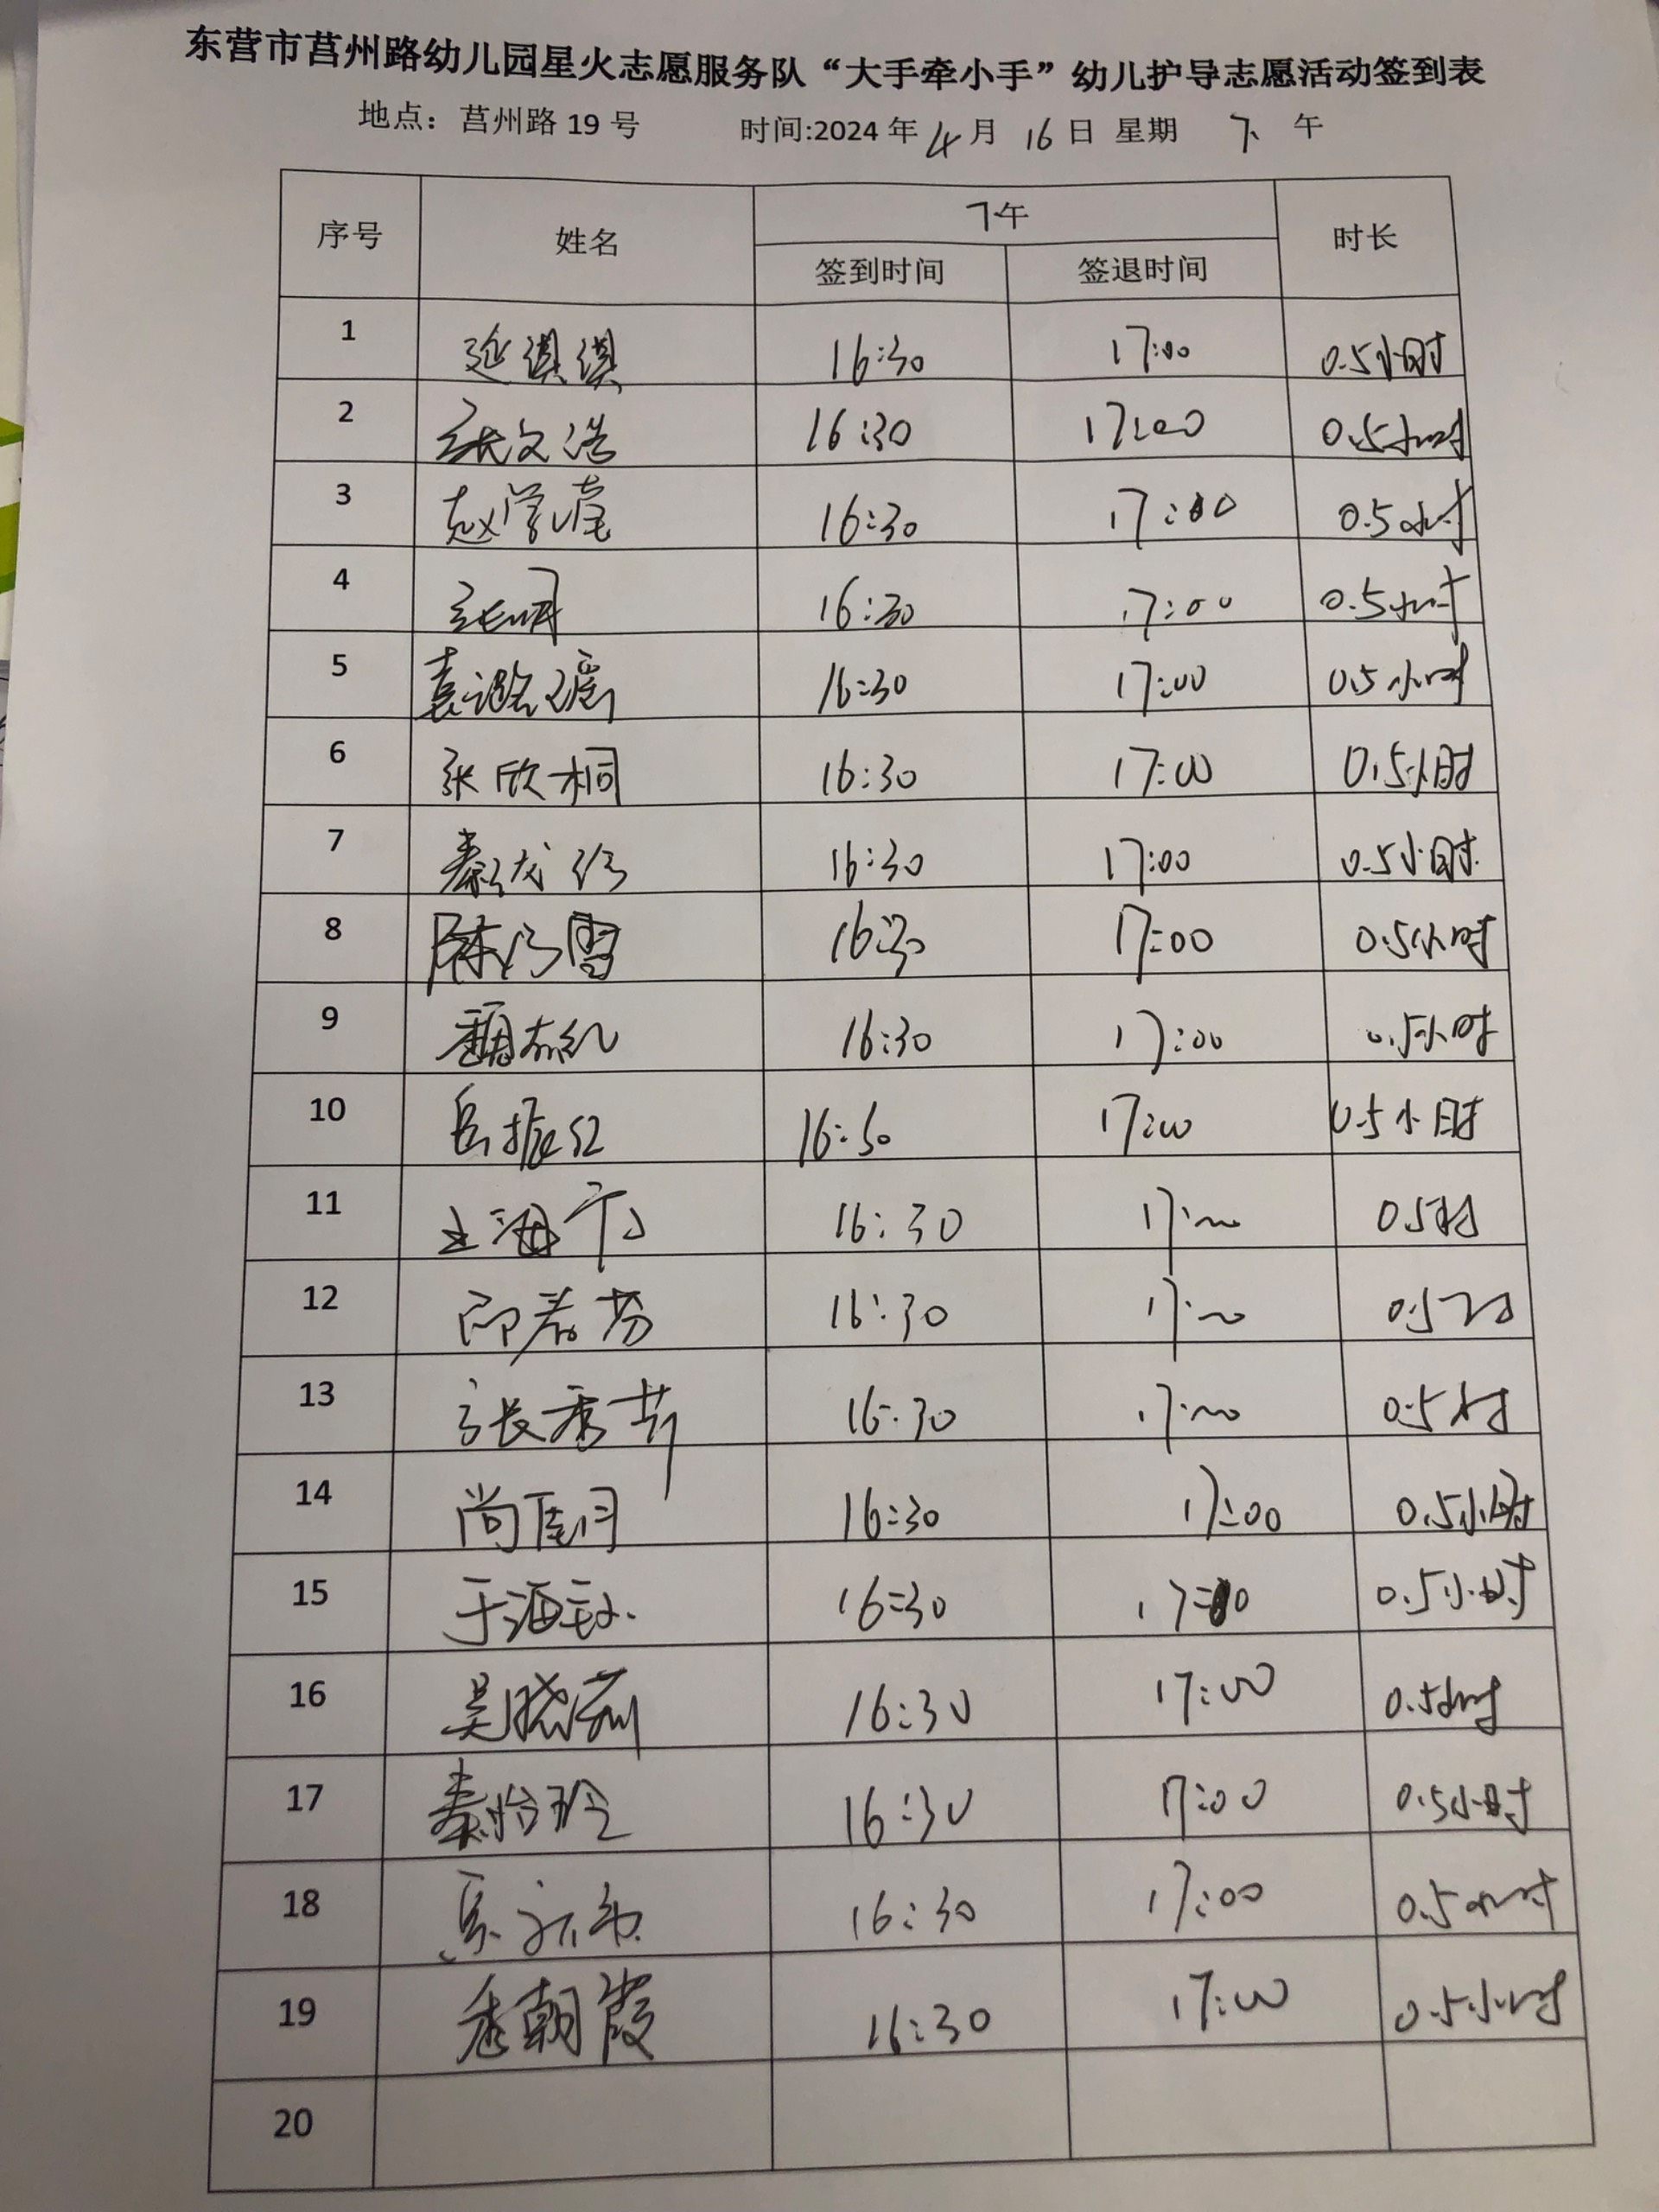 东营市莒州路幼儿园星火志愿服务队“大手牵小手”幼儿护导志愿活动签到表
地点：莒州路 19 号 时间:2024 年 4 月 16 日 星期 下 午
序号 姓名 下午 时长
签到时间 签退时间
1 延淇淇 16:30 17:00 0.5小时
2 张文浩 16:30 17:00 0.5小时
3 赵学 16:30 17:00 0.5小时
4 张明 16:30 17:00 0.5小时
5 袁 瑶 16:30 17:00 0.5小时
6 张欣桐 16:30 17:00 0.5小时
7 秦 16:30 17:00 0.5小时
8 陈 雪 16:30 17:00 0.5小时
9 16:30 17:00 0.5小时
10 岳振红 16:30 17:00 0.5小时
11 王海 16:30 17:00 0.5时
12 16:30 17:00 0.5
13 张秀 16:30 17:00 0.5小时
14 尚 16:30 17:00 0.5小时
15 于海 16:30 17:00 0.5小时
16 吴晓 16:30 17:00 0.5小时
17 秦怡玲 16:30 17:00 0.5小时
18 16:30 17:00 0.5小时
19 朝霞 16:30 17:00 0.5小时
20